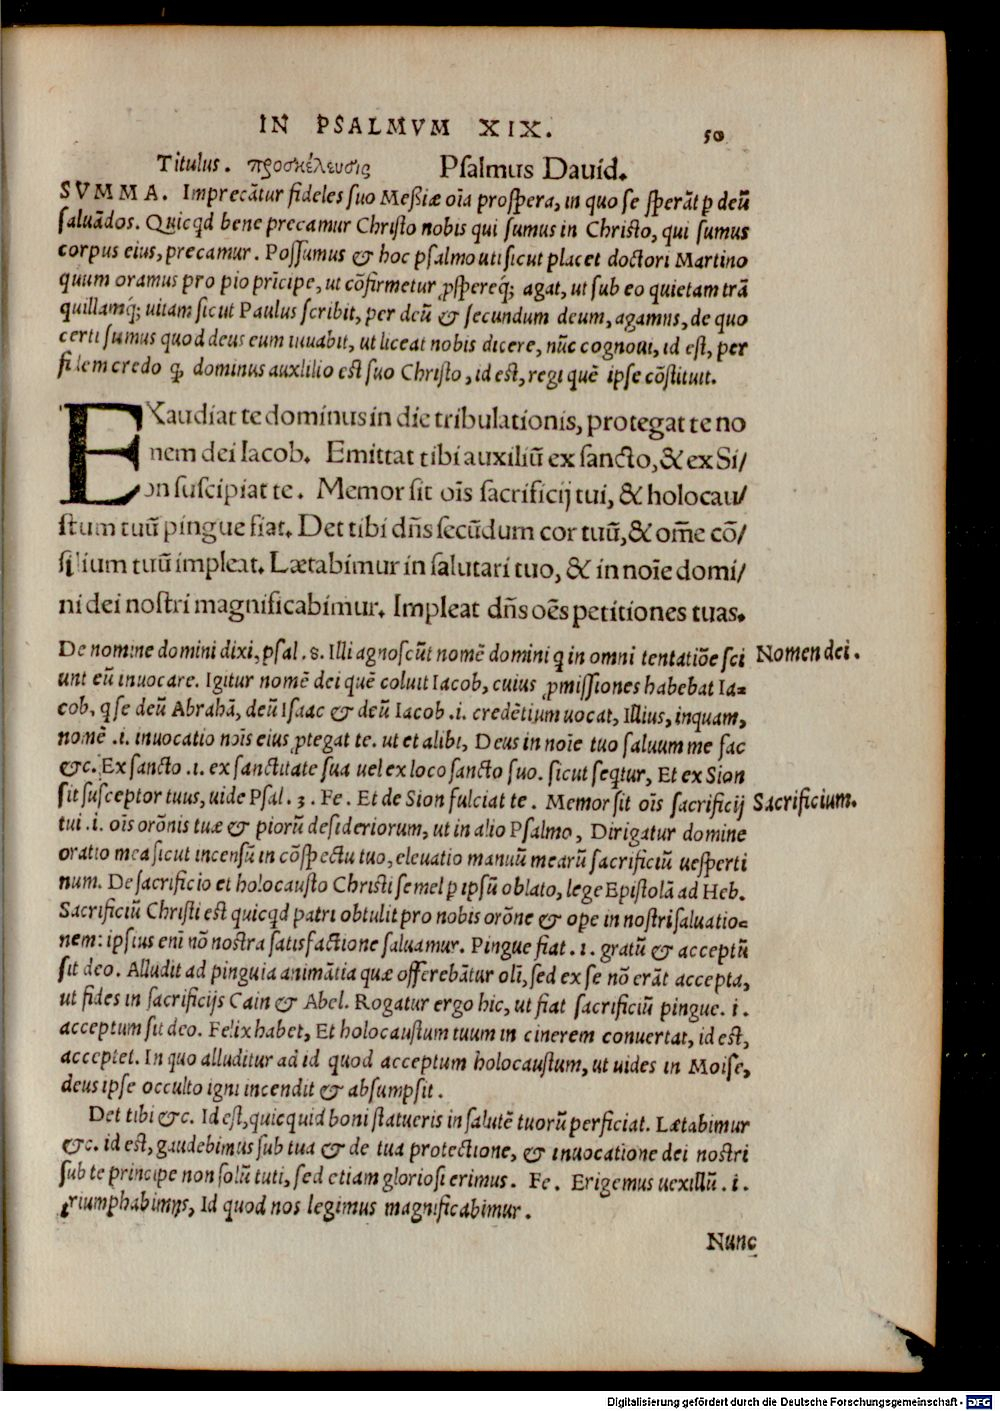 IN PSALMVM XIX. 50
Titulus. προσκέλευσις Psalmus Dauid.
SVMMA. Imprecātur fideles suo Meßiæ oīa prospera, in quo se sperāt p deū
saluādos. Quicqd bene precamur Christo nobis qui sumus in Christo, qui sumus
corpus eius, precamur. Possumus & hoc psalmo uti sicut placet doctori Martino
quum oramus pro pio prīcipe, ut cōfirmetur ꝓspereq́; agat, ut sub eo quietam trā
quillamq́; uitam sicut Paulus scribit, per deū & secundum deum, agamus, de quo
certi sumus quod deus eum iuuabit, ut liceat nobis dicere, nūc cognoui, id est, per
fidem credo ꝙ dominus auxilio est suo Christo, id est, regi quē ipse cōstituit.
EXaudiat te dominus in die tribulationis, protegat te no
nem dei Iacob. Emittat tibi auxiliū ex sancto, & ex Si/
on suscipiat te. Memor sit oīs sacrificij tui, & holocau/
stum tuū pingue fiat. Det tibi dn̄s secūdum cor tuū, & om̄e cō/
silium tuū impleat. Lætabimur in salutari tuo, & in noīe domi/
ni dei nostri magnificabimur. Impleat dn̄s oēs petitiones tuas.
De nomine domini dixi, psal. 8. Illi agnoscūt nomē domini q in omni tentatiōe sci
Nomen dei.
unt eū inuocare. Igitur nomē dei quē coluit Iacob, cuius ꝓmissiones habebat Ia=
cob, q se deū Abrahā, deū Isaac & deū Iacob .i. credētium uocat, Illius, inquam,
nomē .i. inuocatio noīs eius ꝓtegat te. ut et alibi, Deus in noīe tuo saluum me fac
&c. Ex sancto .i. ex sanctitate sua uel ex loco sancto suo. sicut seqtur, Et ex Sion
sit susceptor tuus, uide Psal. 3. Fe. Et de Sion fulciat te. Memor sit oīs sacrificij
Sacrificium.
tui .i. oīs orōnis tuæ & piorū desideriorum, ut in alio Psalmo, Dirigatur domine
oratio mea sicut incensū in cōspectu tuo, eleuatio manuū mearū sacrificiū uesperti
num. De sacrificio et holocausto Christi semel p ipsū oblato, lege Epistolā ad Heb.
Sacrificiū Christi est quicqd patri obtulit pro nobis orōne & ope in nostri saluatio=
nem: ipsius enī nō nostra satisfactione saluamur. Pingue fiat .i. gratū & acceptū
sit deo. Alludit ad pinguia animātia quæ offerebātur olī, sed ex se nō erāt accepta,
ut fides in sacrificijs Cain & Abel. Rogatur ergo hic, ut fiat sacrificiū pingue. i.
acceptum sit deo. Felix habet, Et holocaustum tuum in cinerem conuertat, id est,
acceptet. In quo alluditur ad id quod acceptum holocaustum, ut uides in Moise,
deus ipse occulto igni incendit & absumpsit.
Det tibi &c. Id est, quicquid boni statueris in salutē tuorū perficiat. Lætabimur
&c. id est, gaudebimus sub tua & de tua protectione, & inuocatione dei nostri
sub te principe non solū tuti, sed etiam gloriosi erimus. Fe. Erigemus uexillū .i.
triumphabimus, Id quod nos legimus magnificabimur.
Nunc
Digitalisierung gefördert durch die Deutsche Forschungsgemeinschaft - DFG